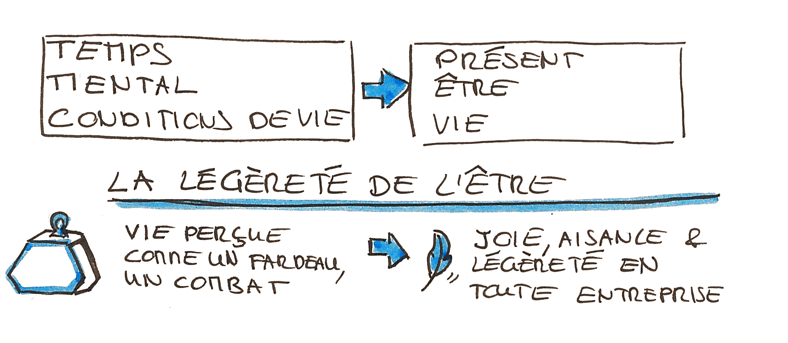 TEMPS
MENTAL
CONDITIONS DE VIE
PRÉSENT
ÊTRE
VIE
LA LÉGÈRETÉ DE L'ÊTRE
VIE PERÇUE
COMME UN FARDEAU,
UN COMBAT
JOIE, AISANCE &
LÉGÈRETÉ EN
TOUTE ENTREPRISE